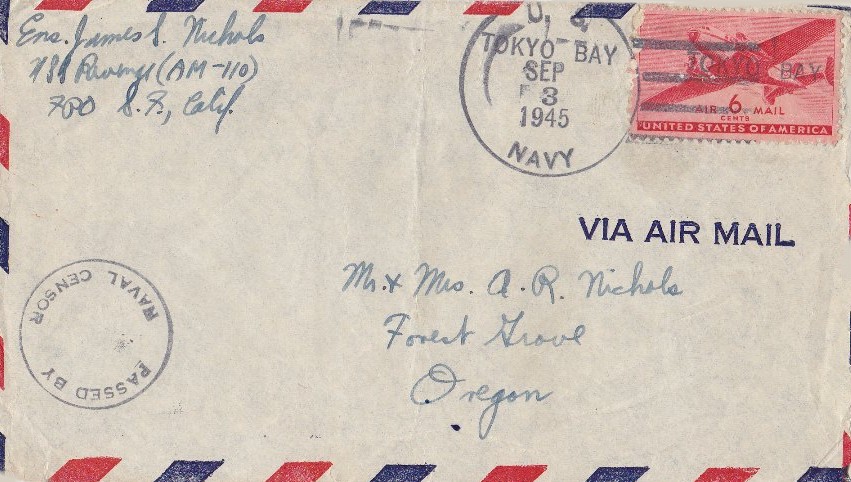 Ens. James S. Nichols
USS Revenge (AM-110)
FPO S.F., Calif.
U. S.
TOKYO BAY
SEP
3
1945
NAVY
TOKYO BAY
AIR 6 MAIL
CENTS
UNITED STATES OF AMERICA
VIA AIR MAIL
Mr. & Mrs. A. R. Nichols
Forest Grove
Oregon
PASSED BY
NAVAL CENSOR